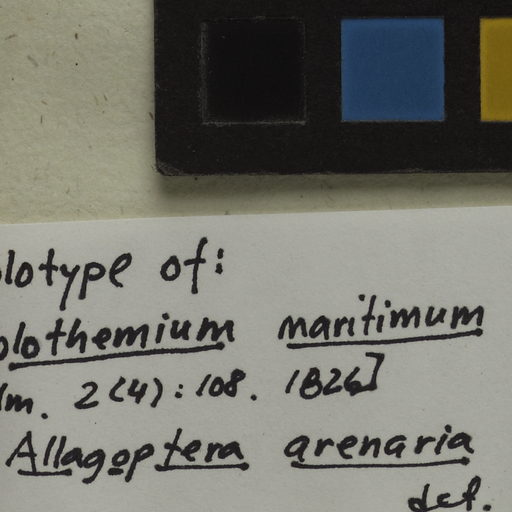 olotype of:
olothemium maritimum
lm. 2(4): 108. 1826]
Allagoptera arenaria
det.